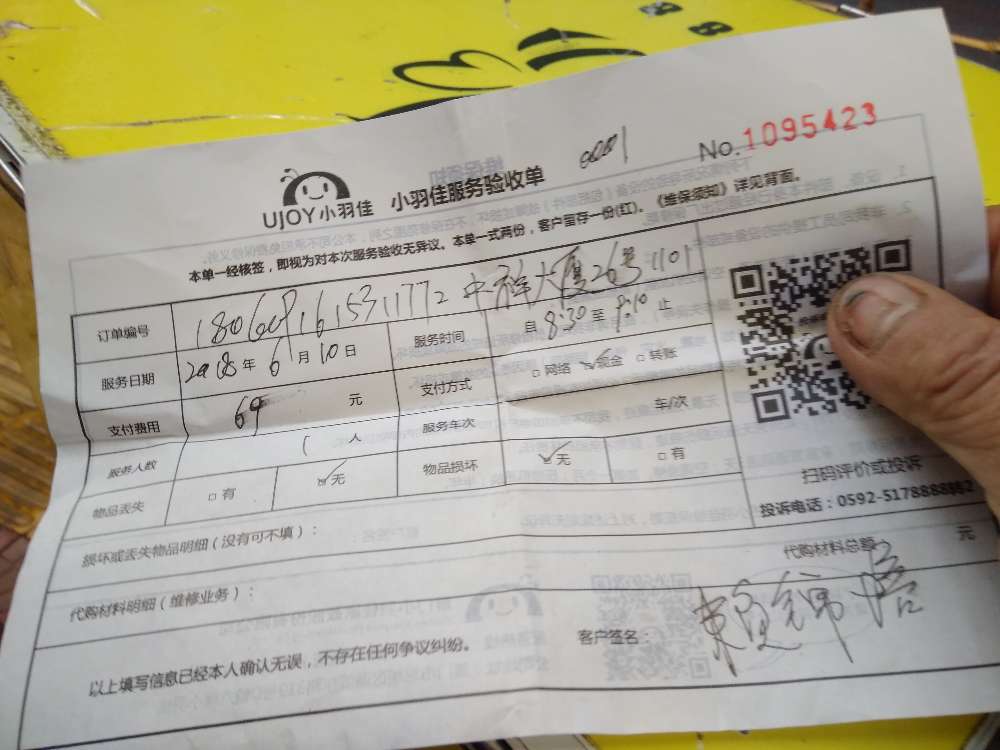 0001
No.1095423
UJOY小羽佳 小羽佳服务验收单
本单一经核签，即视为对本次服务验收无异议。本单一式两份，客户留存一份(红)。《维保须知》详见背面。
订单编号 1806091615311772 中祥大厦26号1101
服务日期 2018年6月10日 服务时间 自8:30至9:10止
支付费用 69元 支付方式 □网络 ☑现金 □转账
服务人数 1人 服务车次 车/次
物品丢失 □有 ☑无 物品损坏 ☑无 □有
扫码评价或投诉
投诉电话：0592-5178888
损坏或丢失物品明细（没有可不填）：
代购材料明细（维修业务）： 代购材料总额 元
以上填写信息已经本人确认无误，不存在任何争议纠纷。 客户签名：